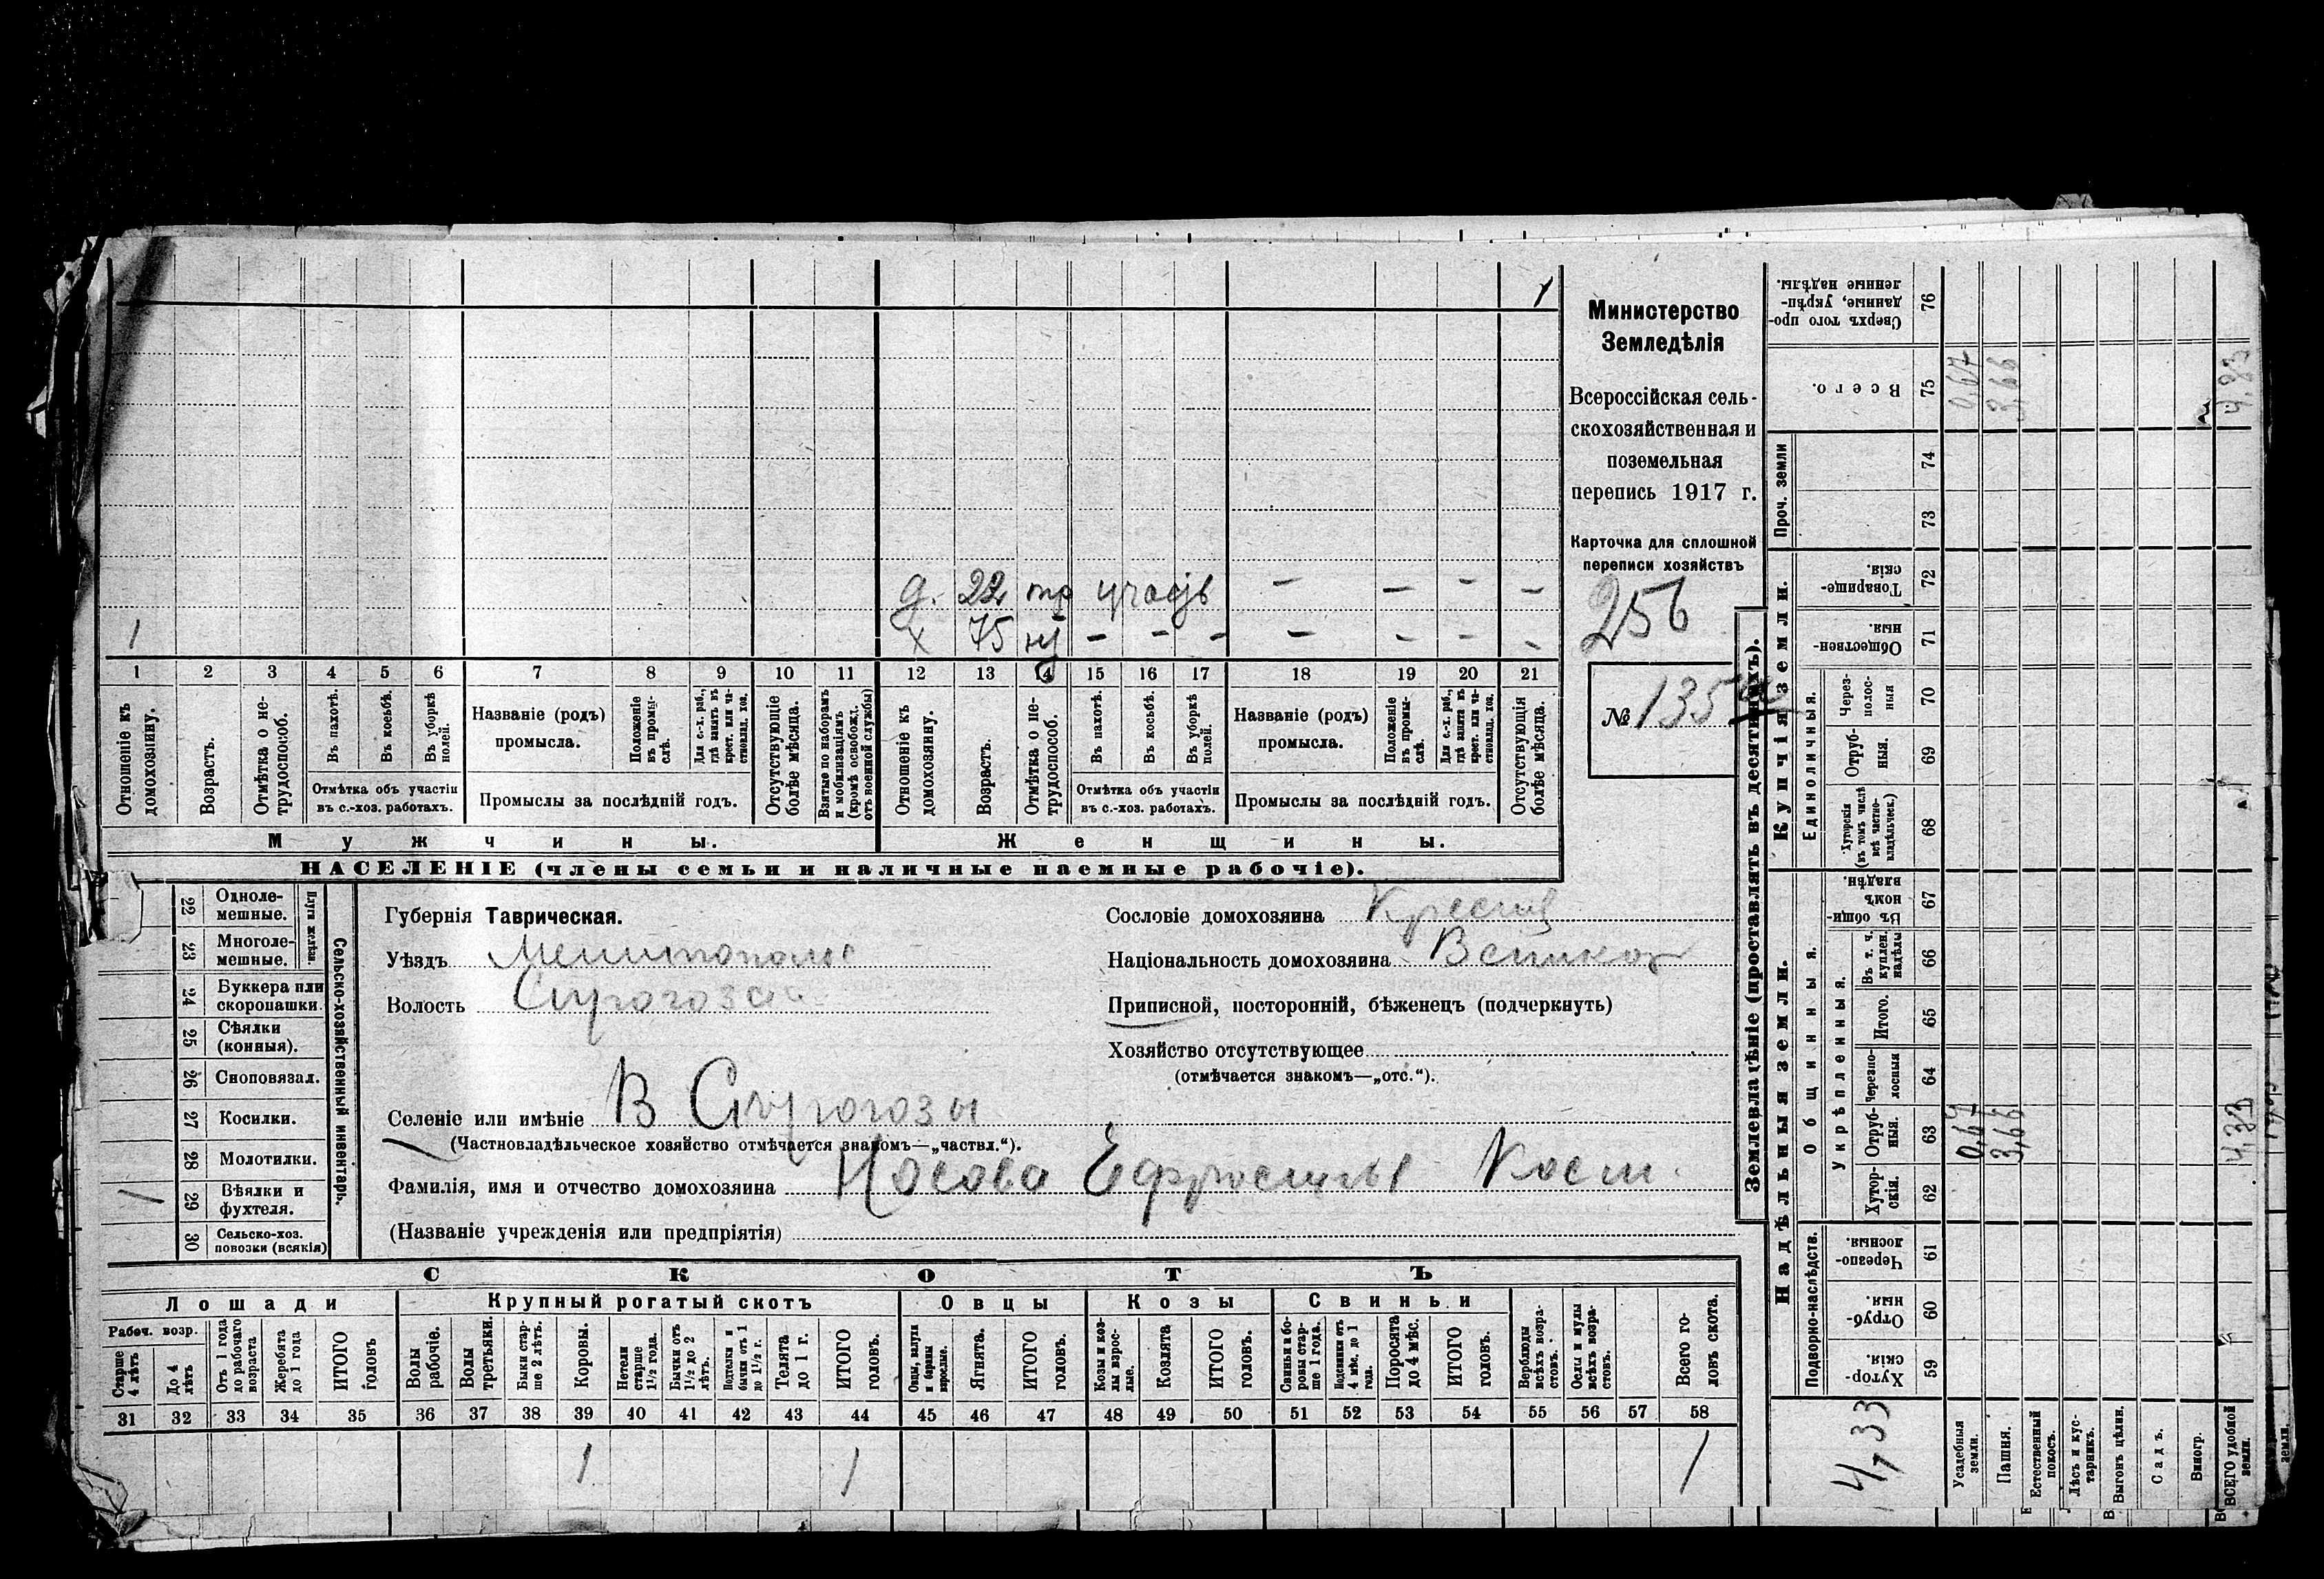 1
д. 22 тр участв — — — —
1 х 75 нт — — — — — — —
1 2 3 4 5 6 7 8 9 10 11 12 13 14 15 16 17 18 19 20 21
Отношеніе къ домохозяину.
Возрастъ.
Отмѣтка о нетрудоспособ.
Въ пахотѣ.
Въ косьбѣ.
Въ уборкѣ полей.
Отмѣтка объ участіи
въ с.-хоз. работахъ.
Названіе (родъ)
промысла.
Положеніе въ промыслѣ.
Для с.-х. раб., гдѣ занятъ въ крест. или частновлад. хоз.
Промыслы за послѣдній годъ.
Отсутствующіе болѣе мѣсяца.
Взятые по наборамъ и мобилизаціямъ (кромѣ освобожд. отъ военной службы)
Отношеніе къ домохозяину.
Возрастъ.
Отмѣтка о нетрудоспособ.
Въ пахотѣ.
Въ косьбѣ.
Въ уборкѣ полей.
Отмѣтка объ участіи
въ с.-хоз. работахъ.
Названіе (родъ)
промысла.
Положеніе въ промыслѣ.
Для с.-х. раб., гдѣ занята въ крест. или частновлад. хоз.
Промыслы за послѣдній годъ.
Отсутствующія болѣе мѣсяца.
Мужчины. Женщины.
НАСЕЛЕНІЕ (члены семьи и наличные наемные рабочіе).
Министерство
Земледѣлія
Всероссійская сель-
скохозяйственная и
поземельная
перепись 1917 г.
Карточка для сплошной
переписи хозяйствъ
256
№ 135
Сельско-хозяйственный инвентарь.
Плуги желѣзн.
22 Одноле-
мешные.
23 Многоле-
мешные.
24 Буккера или
скоропашки.
25 Сѣялки
(конныя).
26 Сноповязал.
27 Косилки.
28 Молотилки.
1 29 Вѣялки и
фухтеля.
30 Сельско-хоз.
повозки (всякія)
Губернія Таврическая.
Уѣздъ Мелитополь
Волость
Селеніе или имѣніе В Серогозы
(Частновладѣльческое хозяйство отмѣчается знакомъ—„частвл.“).
Фамилія, имя и отчество домохозяина Носова Ефросинья Конст.
(Названіе учрежденія или предпріятія)
Сословіе домохозяина Крестьян
Національность домохозяина Великор
Приписной, посторонній, бѣженецъ (подчеркнуть)
Хозяйство отсутствующее
(отмѣчается знакомъ—„отс.“).
СКОТЪ
Лошади Крупный рогатый скотъ Овцы Козы Свиньи
Рабоч. возр.
Старше 4 лѣтъ
До 4 лѣтъ
Отъ 1 года до рабочаго возраста
Жеребята до 1 года
ИТОГО головъ
Волы рабочіе.
Волы третьяки.
Быки старше 2 лѣтъ.
Коровы.
Нетели старше 1½ года.
Бычки отъ 1½ до 2 лѣтъ.
Подтелки и бычки отъ 1 до 1½ г.
Телята до 1 г.
ИТОГО головъ.
Овцы, валухи и бараны взрослые.
Ягнята.
ИТОГО головъ.
Козы и козлы взрослые.
Козлята
ИТОГО головъ.
Свиньи и боровы старше 1 года.
Подсвинки отъ 4 мѣс. до 1 года.
Поросята до 4 мѣс.
ИТОГО головъ.
Верблюды всѣхъ возрастовъ.
Ослы и мулы всѣхъ возрастовъ.
Всего головъ скота.
31 32 33 34 35 36 37 38 39 40 41 42 43 44 45 46 47 48 49 50 51 52 53 54 55 56 57 58
1 1 1
Землевладѣніе (проставлять въ десятинахъ).
Надѣльныя земли.
Купчія земли.
Проч. земли
Подворно-наслѣдств.
Общинныя.
Укрѣпленныя.
Единоличныя.
Сверхъ того проданные, укрѣпленные надѣлы. 76
Всего. 75 0,67 3,66 4,33
74
73
Товарищескія. 72
Общественныя. 71
Черезполосныя 70
Отрубныя. 69
Хуторскія (въ томъ числѣ всѣ частновладѣльческ.) 68
Въ общинномъ владѣн. 67
Въ т. ч. куплен. надѣлы 66
Итого. 65
Черезполосныя 64
Отрубныя. 63 0,67 3,66 4,33
Хуторскія. 62
Черезполосныя. 61
Отрубныя. 60
Хуторскія. 59
4,33
Усадебныя земли.
Пашня.
Естественный покосъ.
Лѣсъ и кустарникъ.
Выгонъ цѣлин.
Садъ.
Виногр.
ВСЕГО удобной земли.